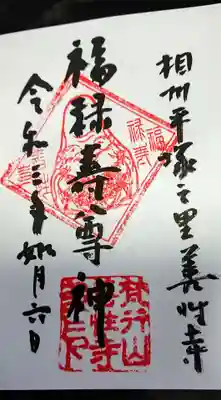 相州平塚之里善性寺
福禄寿尊神
令和三年如月六日
福禄寿